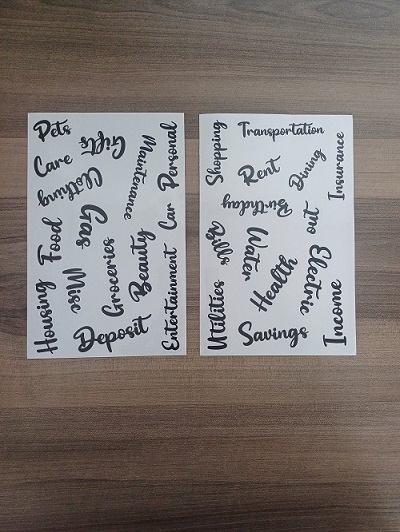 Pets
Gifts
Care
Maintenance
Personal
Clothing
Gas
Food
Car
Groceries
Beauty
Misc
Housing
Entertainment
Deposit
Transportation
Shopping
Rent
Dining
Insurance
Birthday
out
Bills
Water
Health
Electric
Utilities
Savings
Income